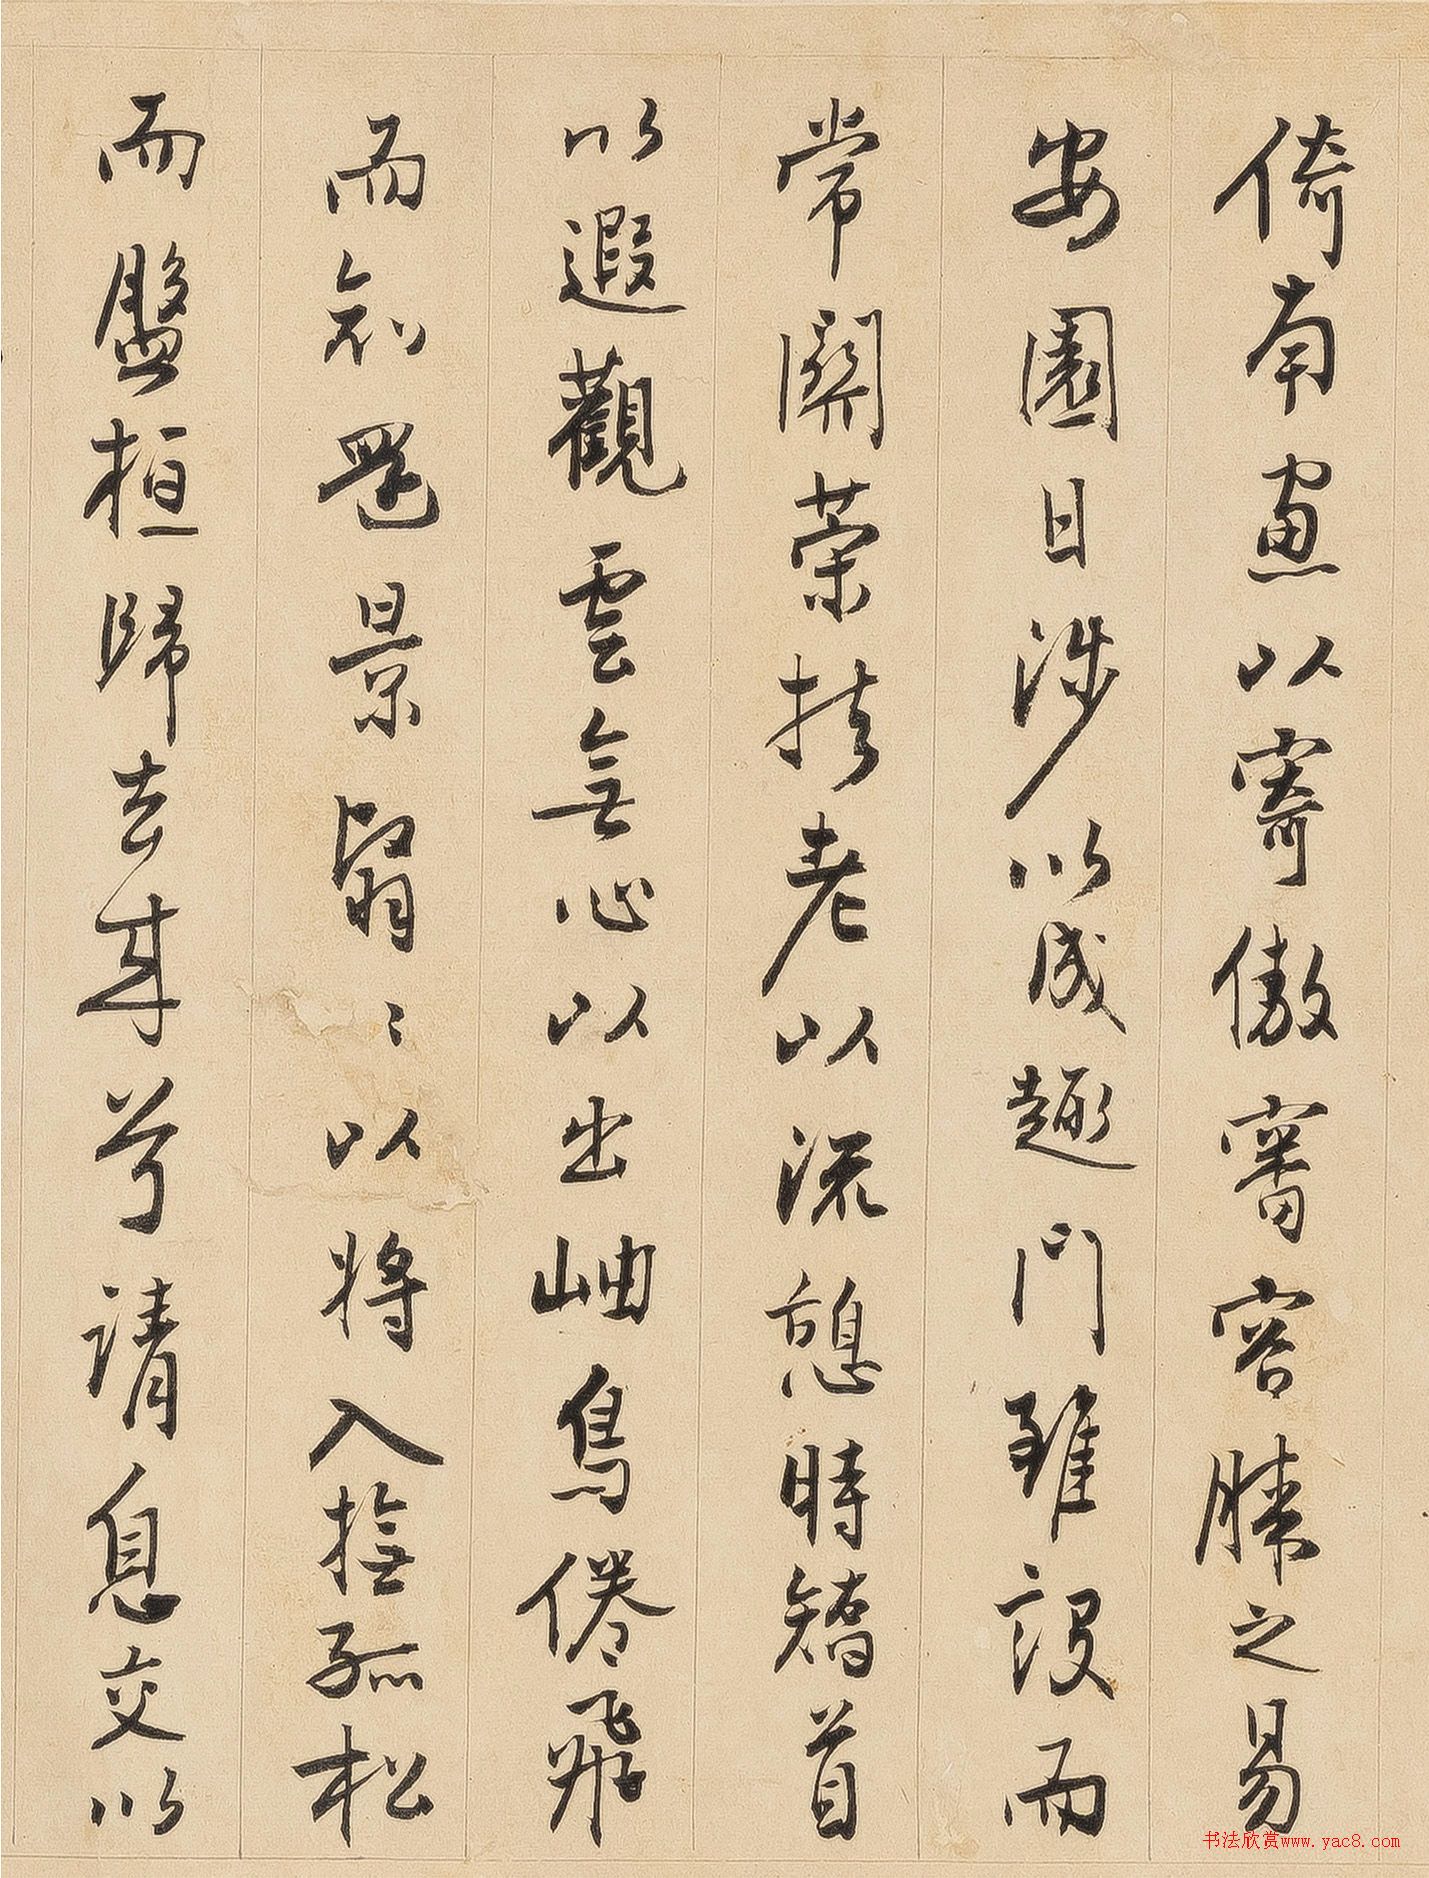 倚南窗以寄傲審容膝之易
安園日涉以成趣門雖設而
常關策扶老以流憩時矯首
以遐觀雲無心以出岫鳥倦飛
而知還景翳〻以將入撫孤松
而盤桓歸去來兮請息交以
书法欣赏www.yac8.com